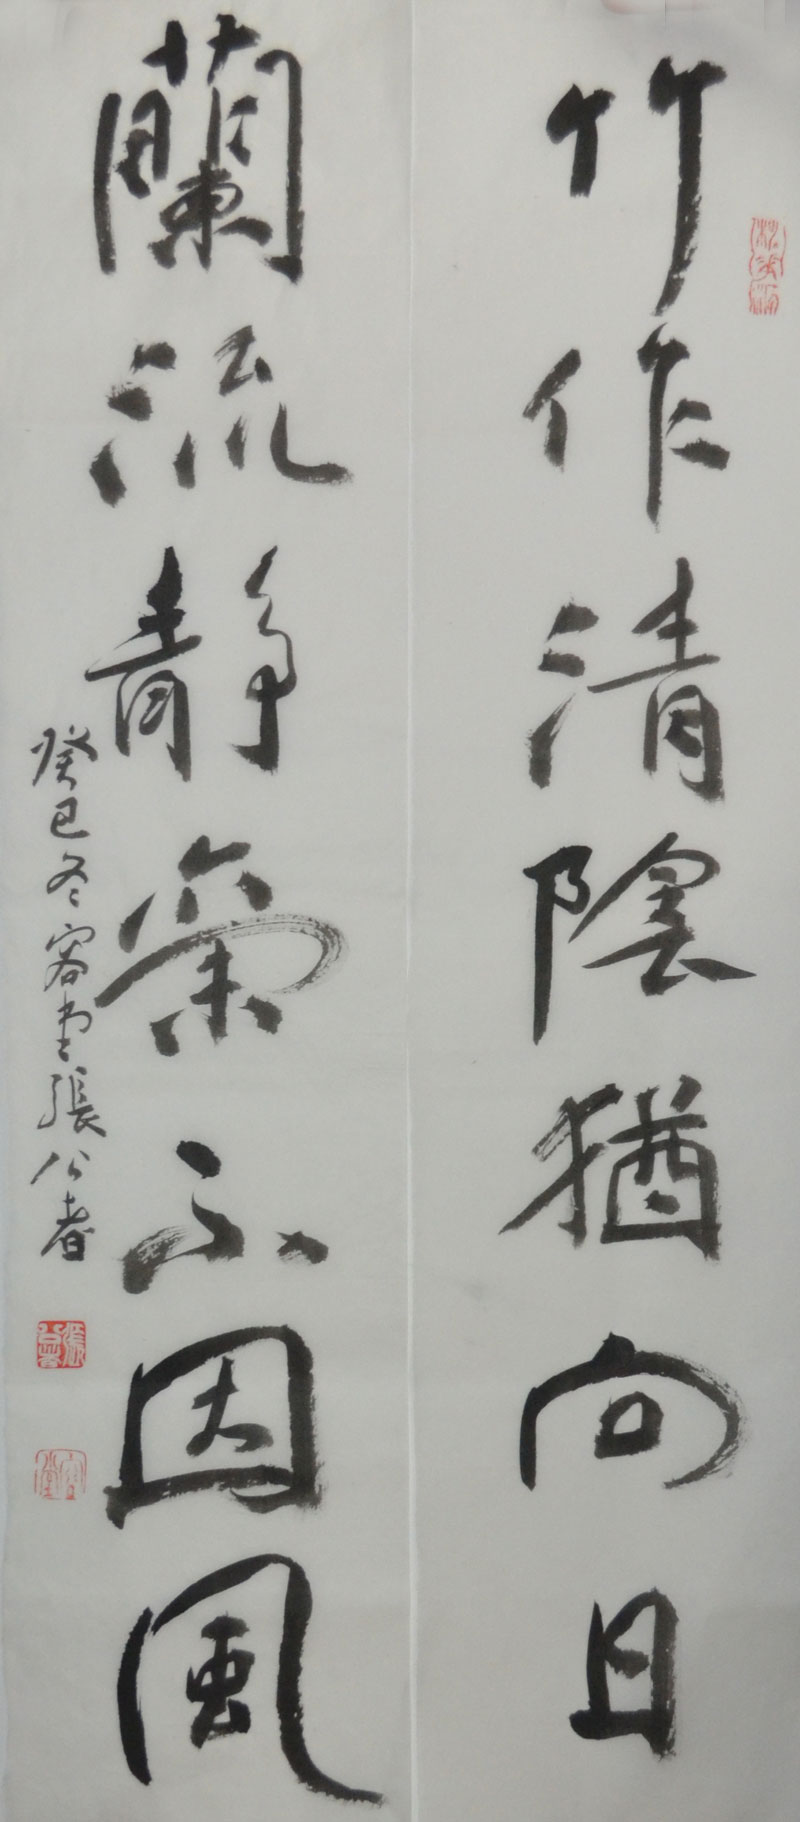 竹作清陰猶向日
蘭流靜氣不因風
癸巳冬容堂張公者